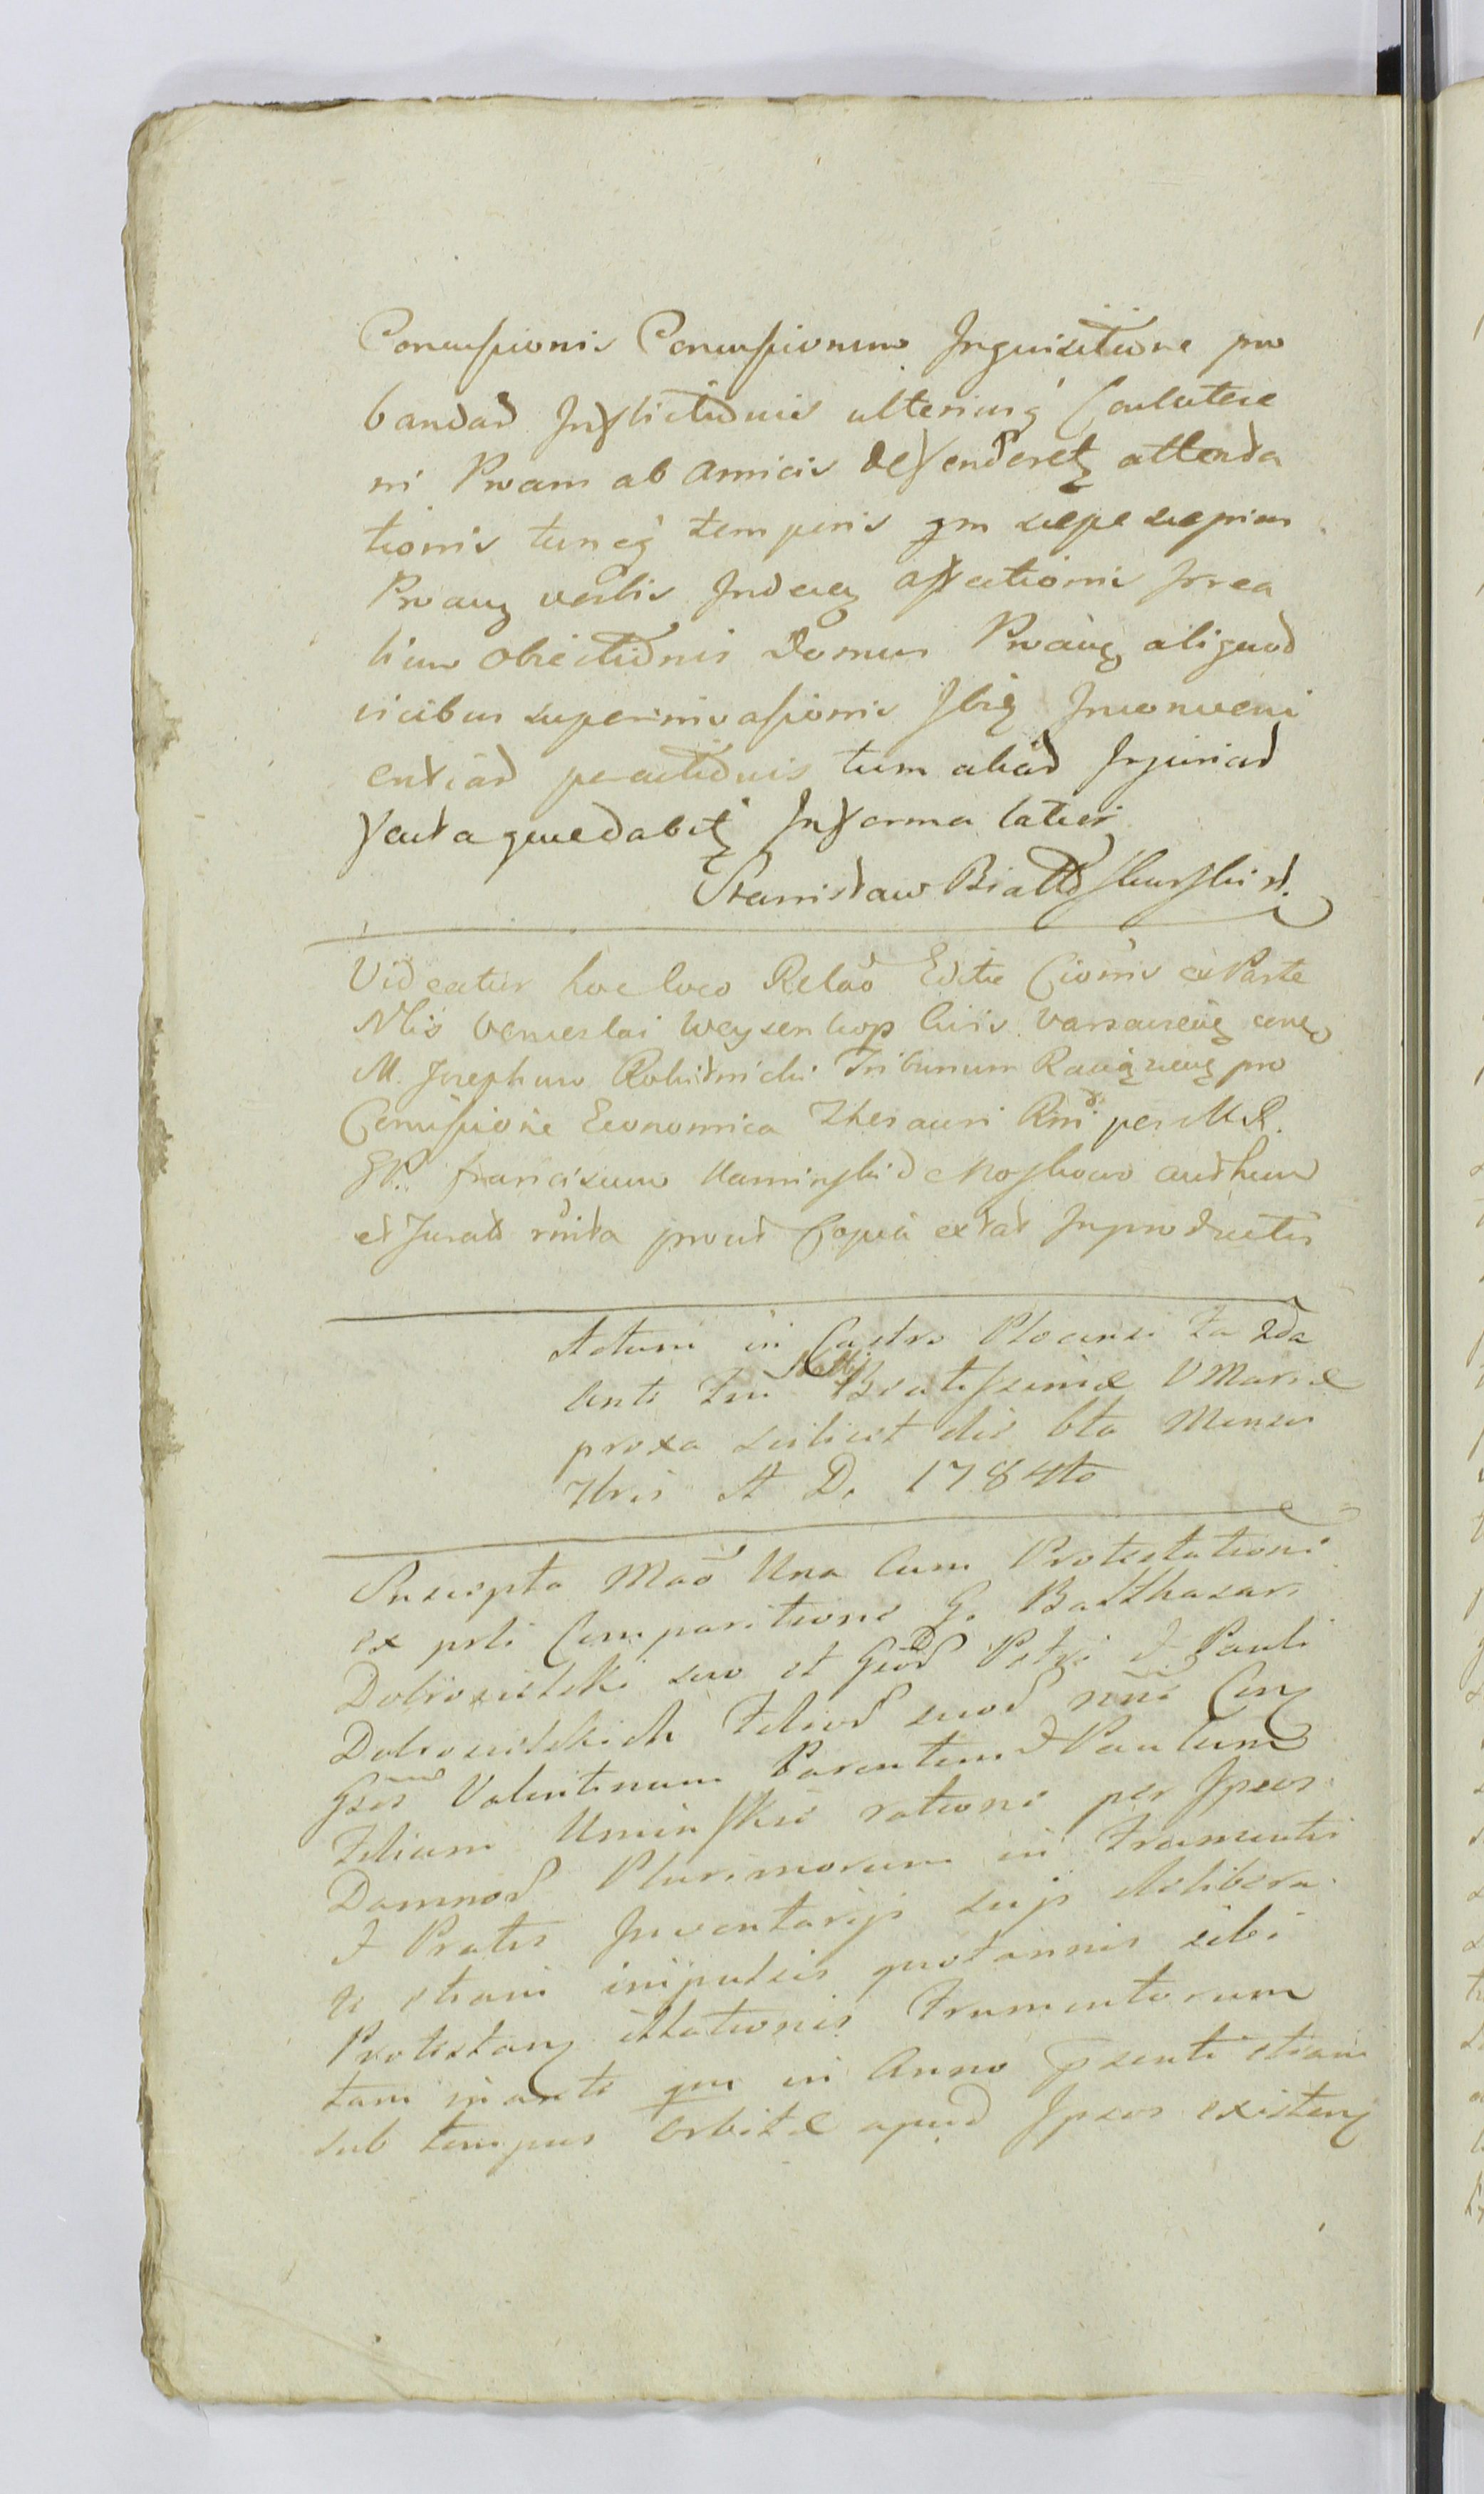 Concussionis Concussionum Inquisitione pro
bandad Inflictiōnis ulteriusq́ Caulutere
ni Proam ab amicis defenderetꝫ attenta
tionis tuncq́ temporis qm saepe saepius
Proanꝫ verbis Indecenꝫ affectionis Irrea
lium obiectiōnis domus Proānꝫ aliquod
vicibus superinvasionis Ibiqꝫ Inconveni
entiād peractiōnis tum aliād Injuriad
facta quedabitꝫ In forma latiori
Stanisław Biało skurski
Videatur hoc loco Relaō Editae Cionis ex Parte
Nlis Venceslai Weysenhop Civis Varsaviēnꝫ conꝫ
M. Josephum Rokitnicki Tribunum Raciąznenꝫ pro
Comissione Economica Thesauri Rni per M. R.
GR. francisum Kaminski d Moskowo authum
et Jurato rnita prout Copia extat In productis
Actum in Castro Plocensi fa 2da
ante Fm Natts Beatissimae V Mariae
proxa scilicet die 6ta Mensis
7bris A D. 1784to
Suscepta Maō Una Cum Protestatione
ex prli Comparitione G. Balthasari
Dobrosielski suo et Gsod Petri & Pauli
Dobrosielskich Filiod suod nne Conꝫ
Gsos Valentinum Parentem & Paulum
Filium Uminskie ratione per Ipsos
Damnod Plurimorum in Frumentis
& Pratis Inventarijs suis delibera
te etiam impulsis quotannis sibi
Protestanꝫ illationis Frumentorum
tam in ante qm in Anno psenti etiam
sub tempus Orbitae apud Ipsos existenꝫ